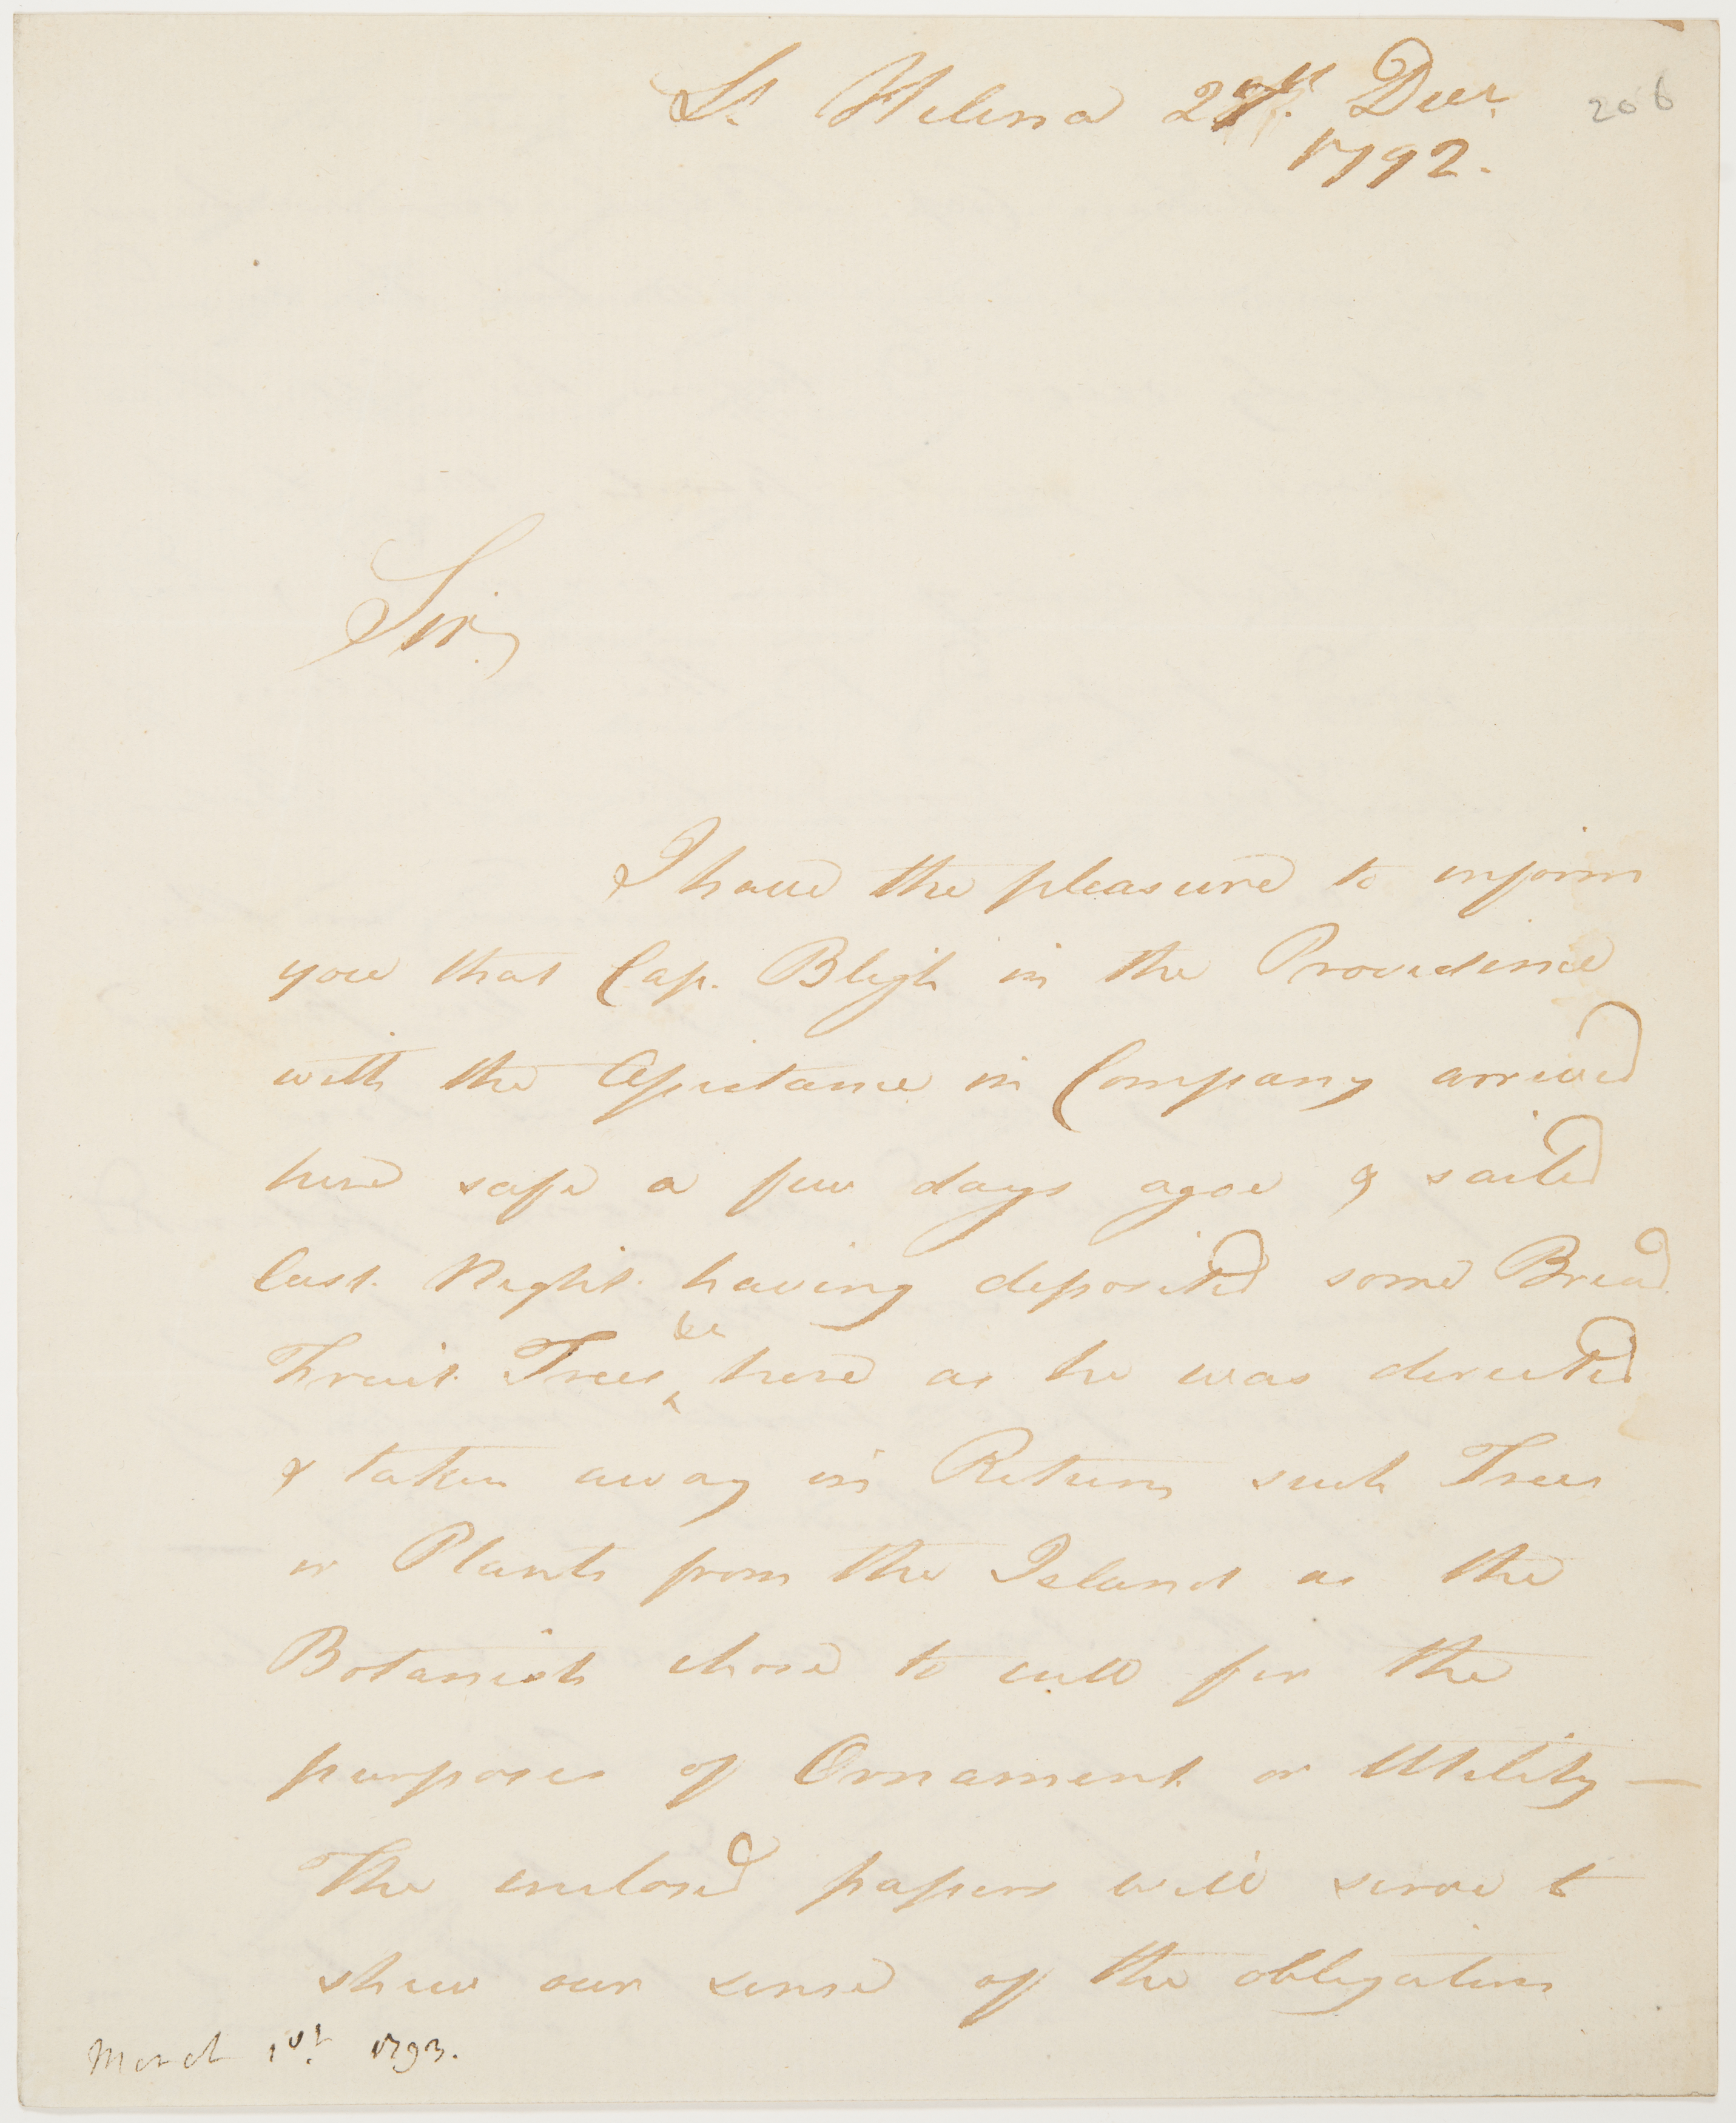 St. Helena 29th. Decr.
1792.
206
Sir,
I have the pleasure to inform
you that Cap. Bligh in the Providence
with the Assistance in Company arrived
here safe a few days agoe & sailed
last Night having deposited some Bread
Fruit Trees &ca here as he was directed
& taken away in Return such Trees
or Plants from the Island as the
Botanists chose to cull for the
purposes of Ornament or Utility —
The enclosed papers will serve to
shew our sense of the obligation
March 1st. 1793.